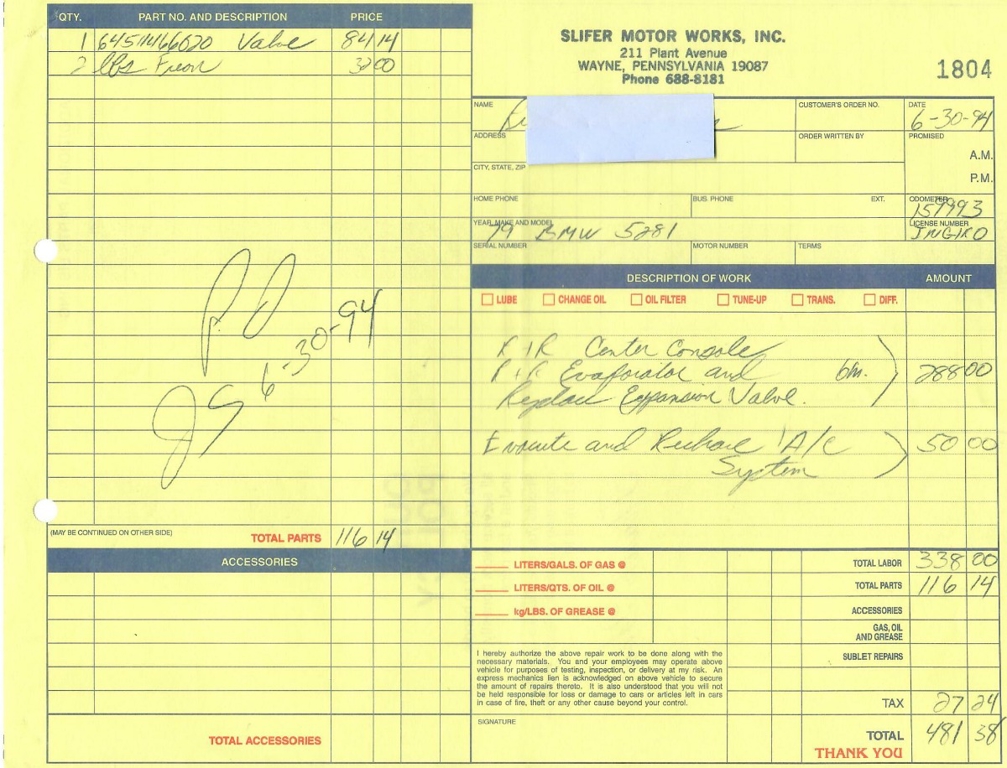 QTY. PART NO. AND DESCRIPTION PRICE
1 64511466020 Valve 84 14
2 lbs Freon 32 00
SLIFER MOTOR WORKS, INC.
211 Plant Avenue
WAYNE, PENNSYLVANIA 19087
Phone 688-8181
1804
NAME
CUSTOMER'S ORDER NO.
DATE
6-30-94
ADDRESS
ORDER WRITTEN BY
PROMISED
A.M.
CITY, STATE, ZIP
P.M.
HOME PHONE
BUS. PHONE EXT.
ODOMETER
157993
YEAR, MAKE AND MODEL
79 BMW 528i
LICENSE NUMBER
SERIAL NUMBER
MOTOR NUMBER
TERMS
DESCRIPTION OF WORK AMOUNT
LUBE CHANGE OIL OIL FILTER TUNE-UP TRANS. DIFF.
R+R Center Console
R+R Evaporator and 288 00
Replace Expansion Valve.
Evacuate and Recharge A/C 50 00
System
Pd
6-30-94
(MAY BE CONTINUED ON OTHER SIDE) TOTAL PARTS 116 14
ACCESSORIES
TOTAL ACCESSORIES
LITERS/GALS. OF GAS @
LITERS/QTS. OF OIL @
kg/LBS. OF GREASE @
I hereby authorize the above repair work to be done along with the
necessary materials. You and your employees may operate above
vehicle for purposes of testing, inspection, or delivery at my risk. An
express mechanics lien is acknowledged on above vehicle to secure
the amount of repairs thereto. It is also understood that you will not
be held responsible for loss or damage to cars or articles left in cars
in case of fire, theft or any other cause beyond your control.
SIGNATURE
TOTAL LABOR 338 00
TOTAL PARTS 116 14
ACCESSORIES
GAS, OIL
AND GREASE
SUBLET REPAIRS
TAX 27 24
TOTAL 481 38
THANK YOU